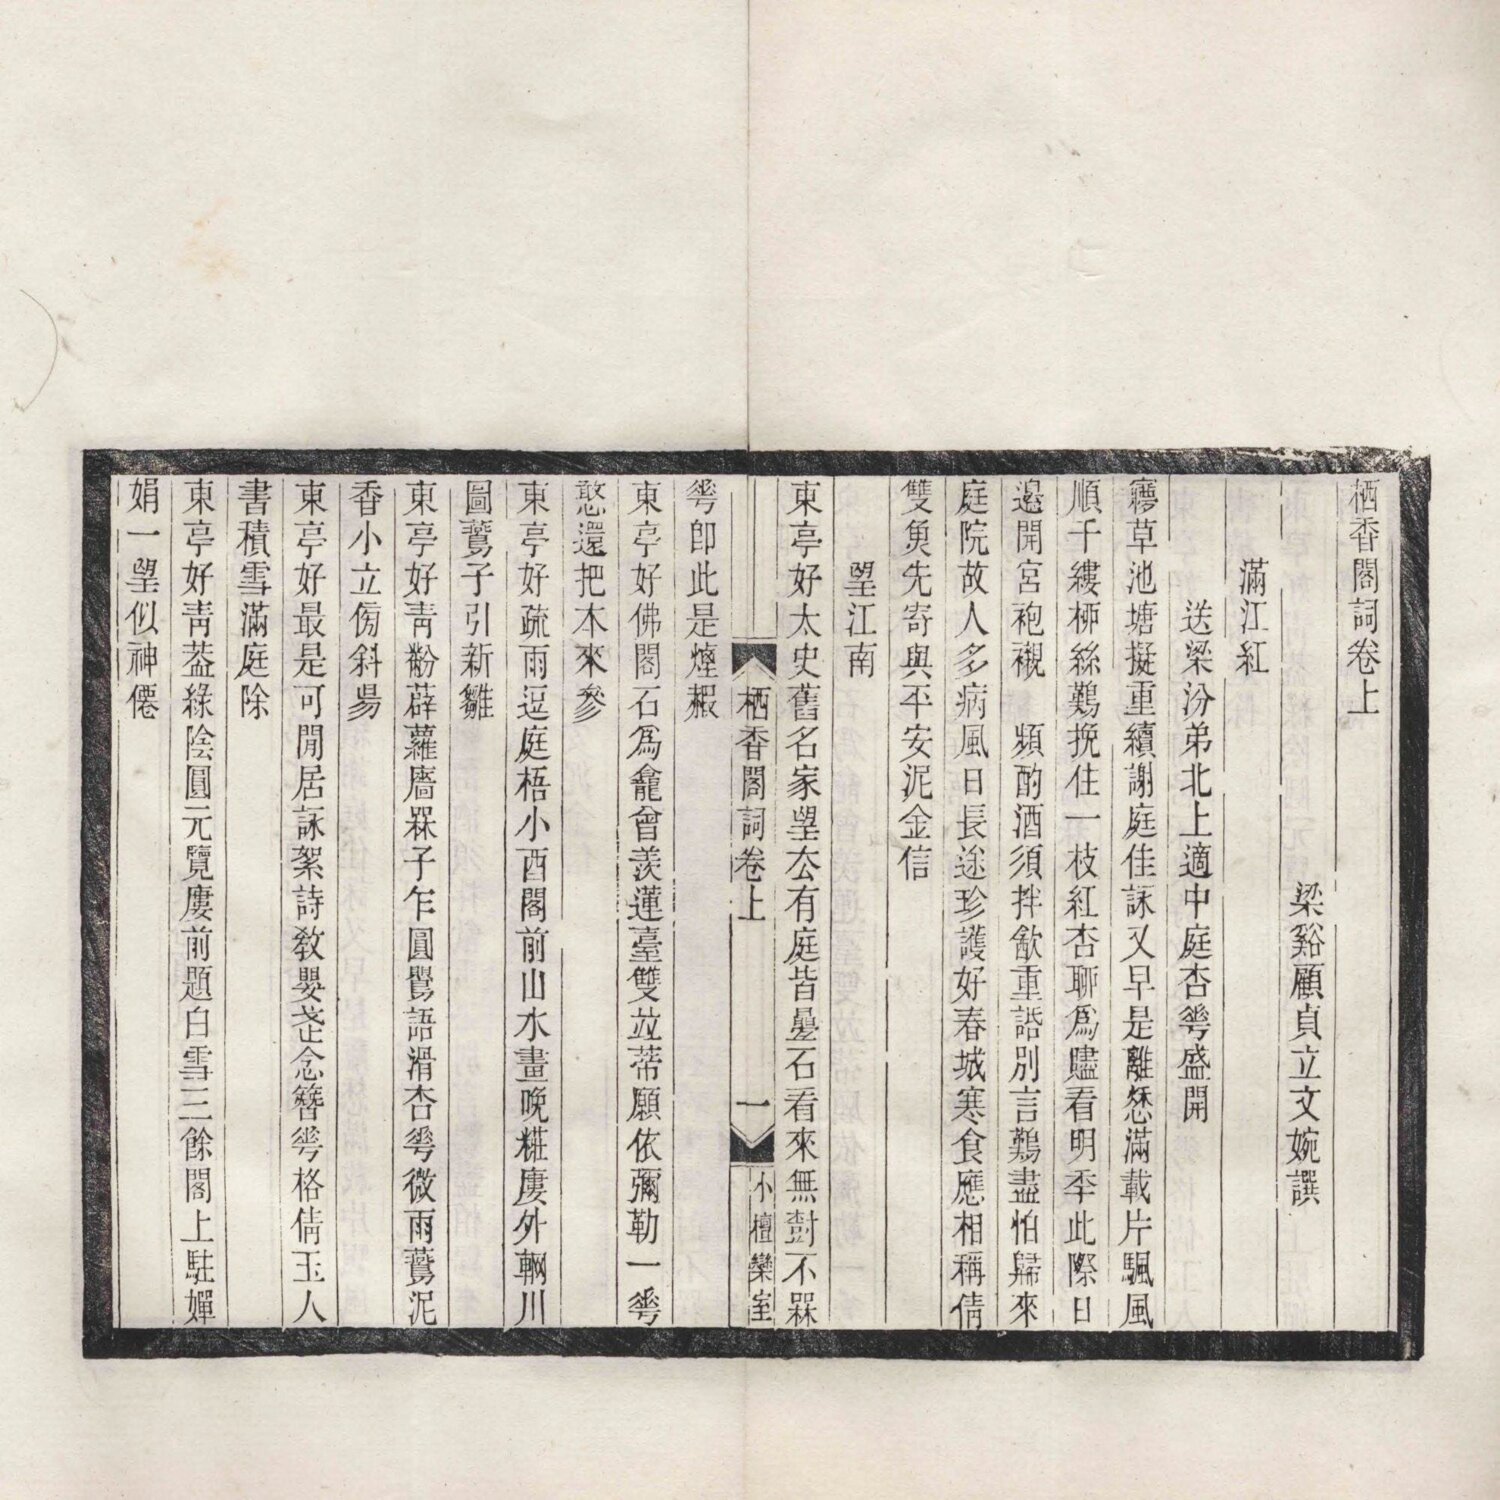 栖香閣詞卷上
梁谿顧貞立文婉譔
滿江紅
送梁汾弟北上適中庭杏蕚盛開
草池塘擬重續謝庭佳詠又早是離愁滿載片颿風
順千縷桺絲難挽住一枝紅杏聊爲贐看明秊此際日
邊開宮袍襯　頻酌酒須拌飲重諧別言難盡怕歸來
庭院故人多病風日長途珍護好春城寒食應相稱倩
雙魚先寄與平安泥金信
望江南
東亭好太史舊名家望厺有庭皆疊石看來無樹不槑
蕚卽此是煙赮
東亭好佛閣石爲龕曾羨蓮臺雙竝蒂願依彌勒一蕚
憨還把本來參
東亭好疏雨逗庭梧小酉閣前山水畫晚糚廔外輞川
圖鷰子引新雛
東亭好靑黺薜蘿牆槑子乍圓鷪語滑杏蕚微雨鷰泥
香小立傍斜昜
東亭好最是可閒居詠絮詩敎嬰芷念簪蕚格倩玉人
書積雪滿庭除
東亭好靑葢綠陰圓元覽廔前題白雪三餘閣上駐嬋
娟一望似神僊
栖香閣詞卷上
一
小檀欒室